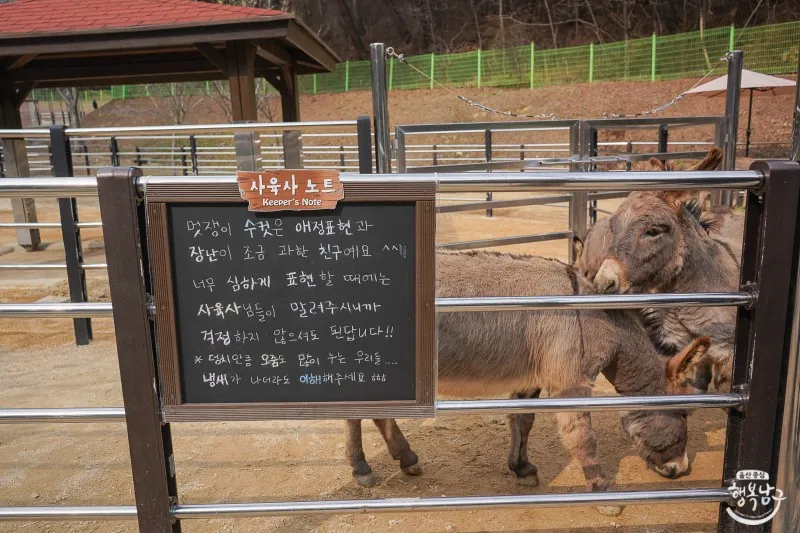 사육사 노트
KEEPER'S NOTE
멋쟁이 수컷은 애정표현과
장난이 조금 과한 친구예요 ^^
너무 심하게 표현할 때에는
사육사님들이 말려주시니까
걱정하지 않으셔도 된답니다!!
* 덩치만큼 오줌도 많이 누는 우리들....
냄새가 나더라도 이해해주세요 ㅎㅎ
울산 중심
행복남구